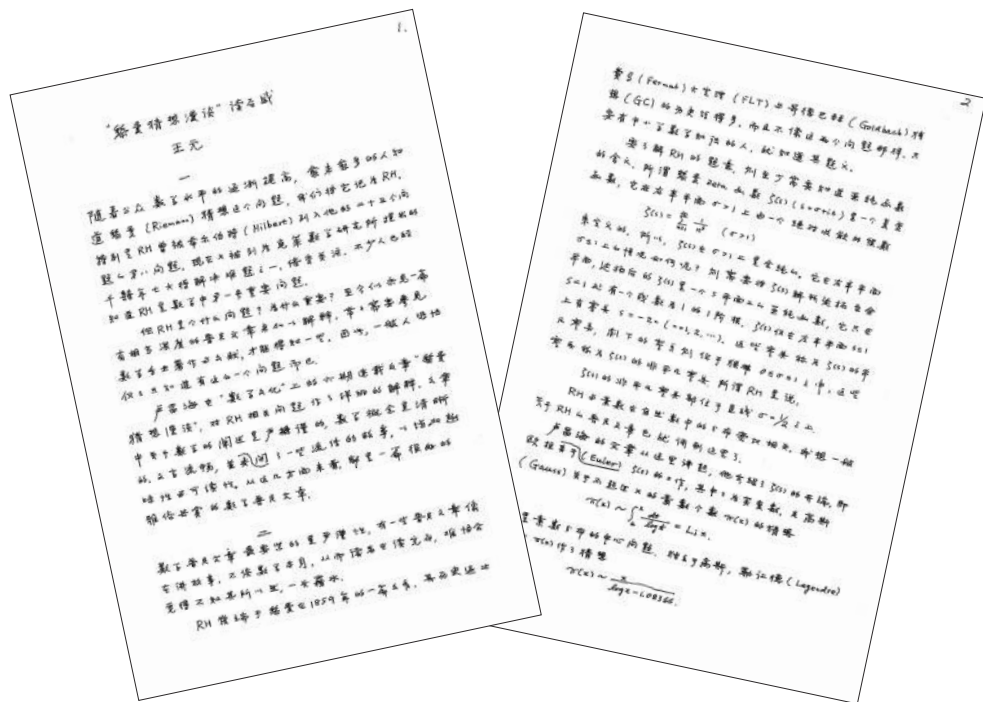 1.
"黎曼猜想漫谈"读后感
王元
一
随着公众数学水平的逐渐提高,愈来愈多的人知
道黎曼(Riemann)猜想这个问题,我们将它记为RH.
特别是RH曾被希尔伯特(Hilbert)列入他的二十三个问
题的第八问题,现在又被列为克莱数学研究所提出的
千禧年七大待解决难题之一,倍受关注.不少人已经
知道RH是数学中第一号重要问题.
但RH是个什么问题?为什么重要?至今似未见一篇
有相当深度的普及文章来加以解释,常常需要参见
数学专业著作与文献,才能得知一些.因此,一般人恐怕
仅仅只知道有这么一个问题而已.
卢昌海在"数学文化"上的六期连载文章"黎曼
猜想漫谈",对RH相关问题作了详细的解释.文章
中关于数学的阐述是严谨的,数学概念是清晰
的,文字流畅,并夹
味性与可读性.从这几方面来看,都是一篇很好的
雅俗共赏的数学普及文章.
二
数学普及文章最要紧的是严谨性,有一些普及文章仅
在讲故事,不涉数学本身,从而读者在读完后,难怪会
觉得不知其所以然,一头雾水.
RH发端于黎曼在1859年的一篇文章,
2.
费马(Fermat)大定理(FLT)与哥德巴赫(Goldbach)猜
想(GC)的历史短得多,而且不像这两个问题那样,只
要有中小学数学知识的人,就知道其题义.
要了解RH的题意,则至少需要知道亚纯函数
的含义.所谓黎曼zeta函数ζ(s)(s=σ+it)是一个复变
函数,它在右半平面σ>1上由一个绝对收敛的级数
ζ(s)=∑_{n=1}^∞ 1/n^s (σ>1)
来定义的.所以,ζ(s)在σ>1上是全纯的.它在左半平面
σ≤1上的情况如何呢?则需要将ζ(s)解析延拓至全
平面,延拓后的ζ(s)是一个s平面上的亚纯函数,它只在
s=1处有一个残数为1的1阶极.ζ(s)仅在左半平面
上有零点s=-2n(n=1,2,…),这些零点称为ζ(s)的平
凡零点,剩下的零点则位于狭带0≤σ≤1之中,这些
零点称为ζ(s)的非平凡零点.所谓RH是说:
ζ(s)的非平凡零点都位于直线σ=1/2之上.
RH与素数在自然数中的分布密切相关.我想一般
关于RH的普及文章也就讲到这里了.
卢昌海的文章从这里讲起,他介绍了ζ(s)的有缘,即
欧拉(Euler)ζ(s)的工作,其中s为实变数,及高斯
(Gauss)关于不超过x的素数个数π(x)的猜想
π(x)~∫_2^x dt/log t = Li x.
是素数分布的中心问题.独立于高斯,勒让德(Legendre)
π(x)作了猜想
π(x)~x/(log x-1.08366).